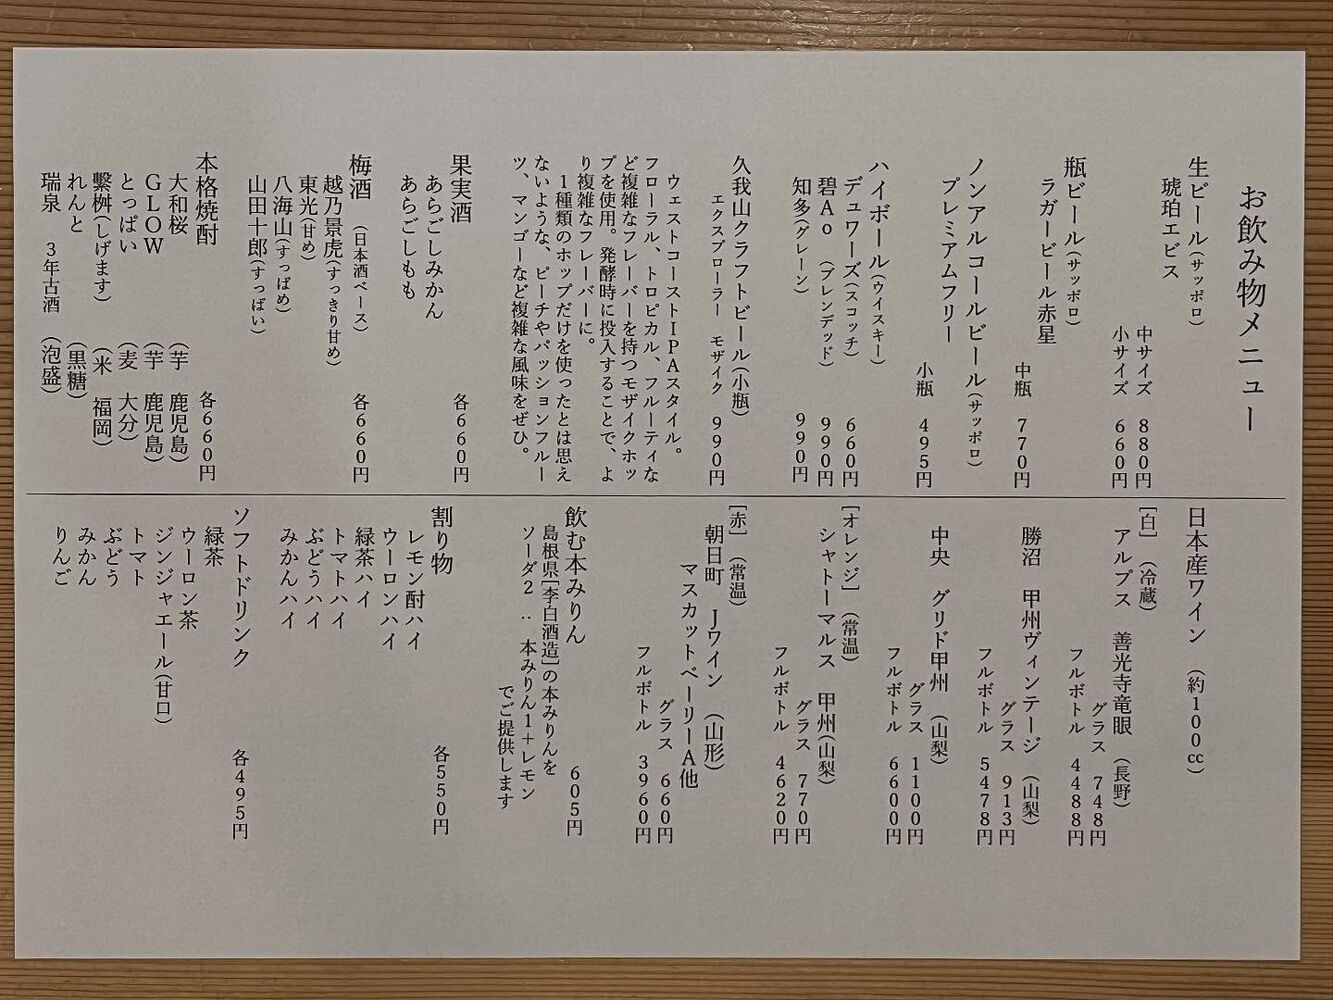 お飲み物メニュー
生ビール(サッポロ)
琥珀エビス
中サイズ 880円
小サイズ 660円
瓶ビール(サッポロ)
ラガービール赤星
中瓶 770円
ノンアルコールビール(サッポロ)
プレミアムフリー
小瓶 495円
ハイボール(ウイスキー)
デュワーズ(スコッチ) 660円
碧Ao (ブレンデッド) 990円
知多(グレーン) 990円
久我山クラフトビール(小瓶)
エクスプローラー モザイク 990円
ウェストコーストIPAスタイル。
フローラル、トロピカル、フルーティな
ど複雑なフレーバーを持つモザイクホッ
プを使用。発酵時に投入することで、よ
り複雑なフレーバーに。
1種類のホップだけを使ったとは思え
ないような、ピーチやパッションフルー
ツ、マンゴーなど複雑な風味をぜひ。
果実酒 各660円
あらごしみかん
あらごしもも
梅酒 (日本酒ベース) 各660円
越乃景虎(すっきり甘め)
東光(甘め)
八海山(すっぱめ)
山田十郎(すっぱい)
本格焼酎 各660円
大和桜 (芋 鹿児島)
GLOW (芋 鹿児島)
とっぱい (麦 大分)
繫桝(しげます) (米 福岡)
れんと (黒糖)
瑞泉 3年古酒 (泡盛)
日本産ワイン (約100cc)
[白] (冷蔵)
アルプス 善光寺竜眼(長野)
グラス 748円
フルボトル 4488円
勝沼 甲州ヴィンテージ (山梨)
グラス 913円
フルボトル 5478円
中央 グリド甲州 (山梨)
グラス 1100円
フルボトル 6600円
[オレンジ] (常温)
シャトーマルス 甲州(山梨)
グラス 770円
フルボトル 4620円
[赤] (常温)
朝日町 Jワイン (山形)
マスカットベーリーA他
グラス 660円
フルボトル 3960円
飲む本みりん 605円
島根県[李白酒造]の本みりんを
ソーダ2:本みりん1+レモン
でご提供します
割り物 各550円
レモン酎ハイ
ウーロンハイ
緑茶ハイ
トマトハイ
ぶどうハイ
みかんハイ
ソフトドリンク 各495円
緑茶
ウーロン茶
ジンジャエール(甘口)
トマト
ぶどう
みかん
りんご